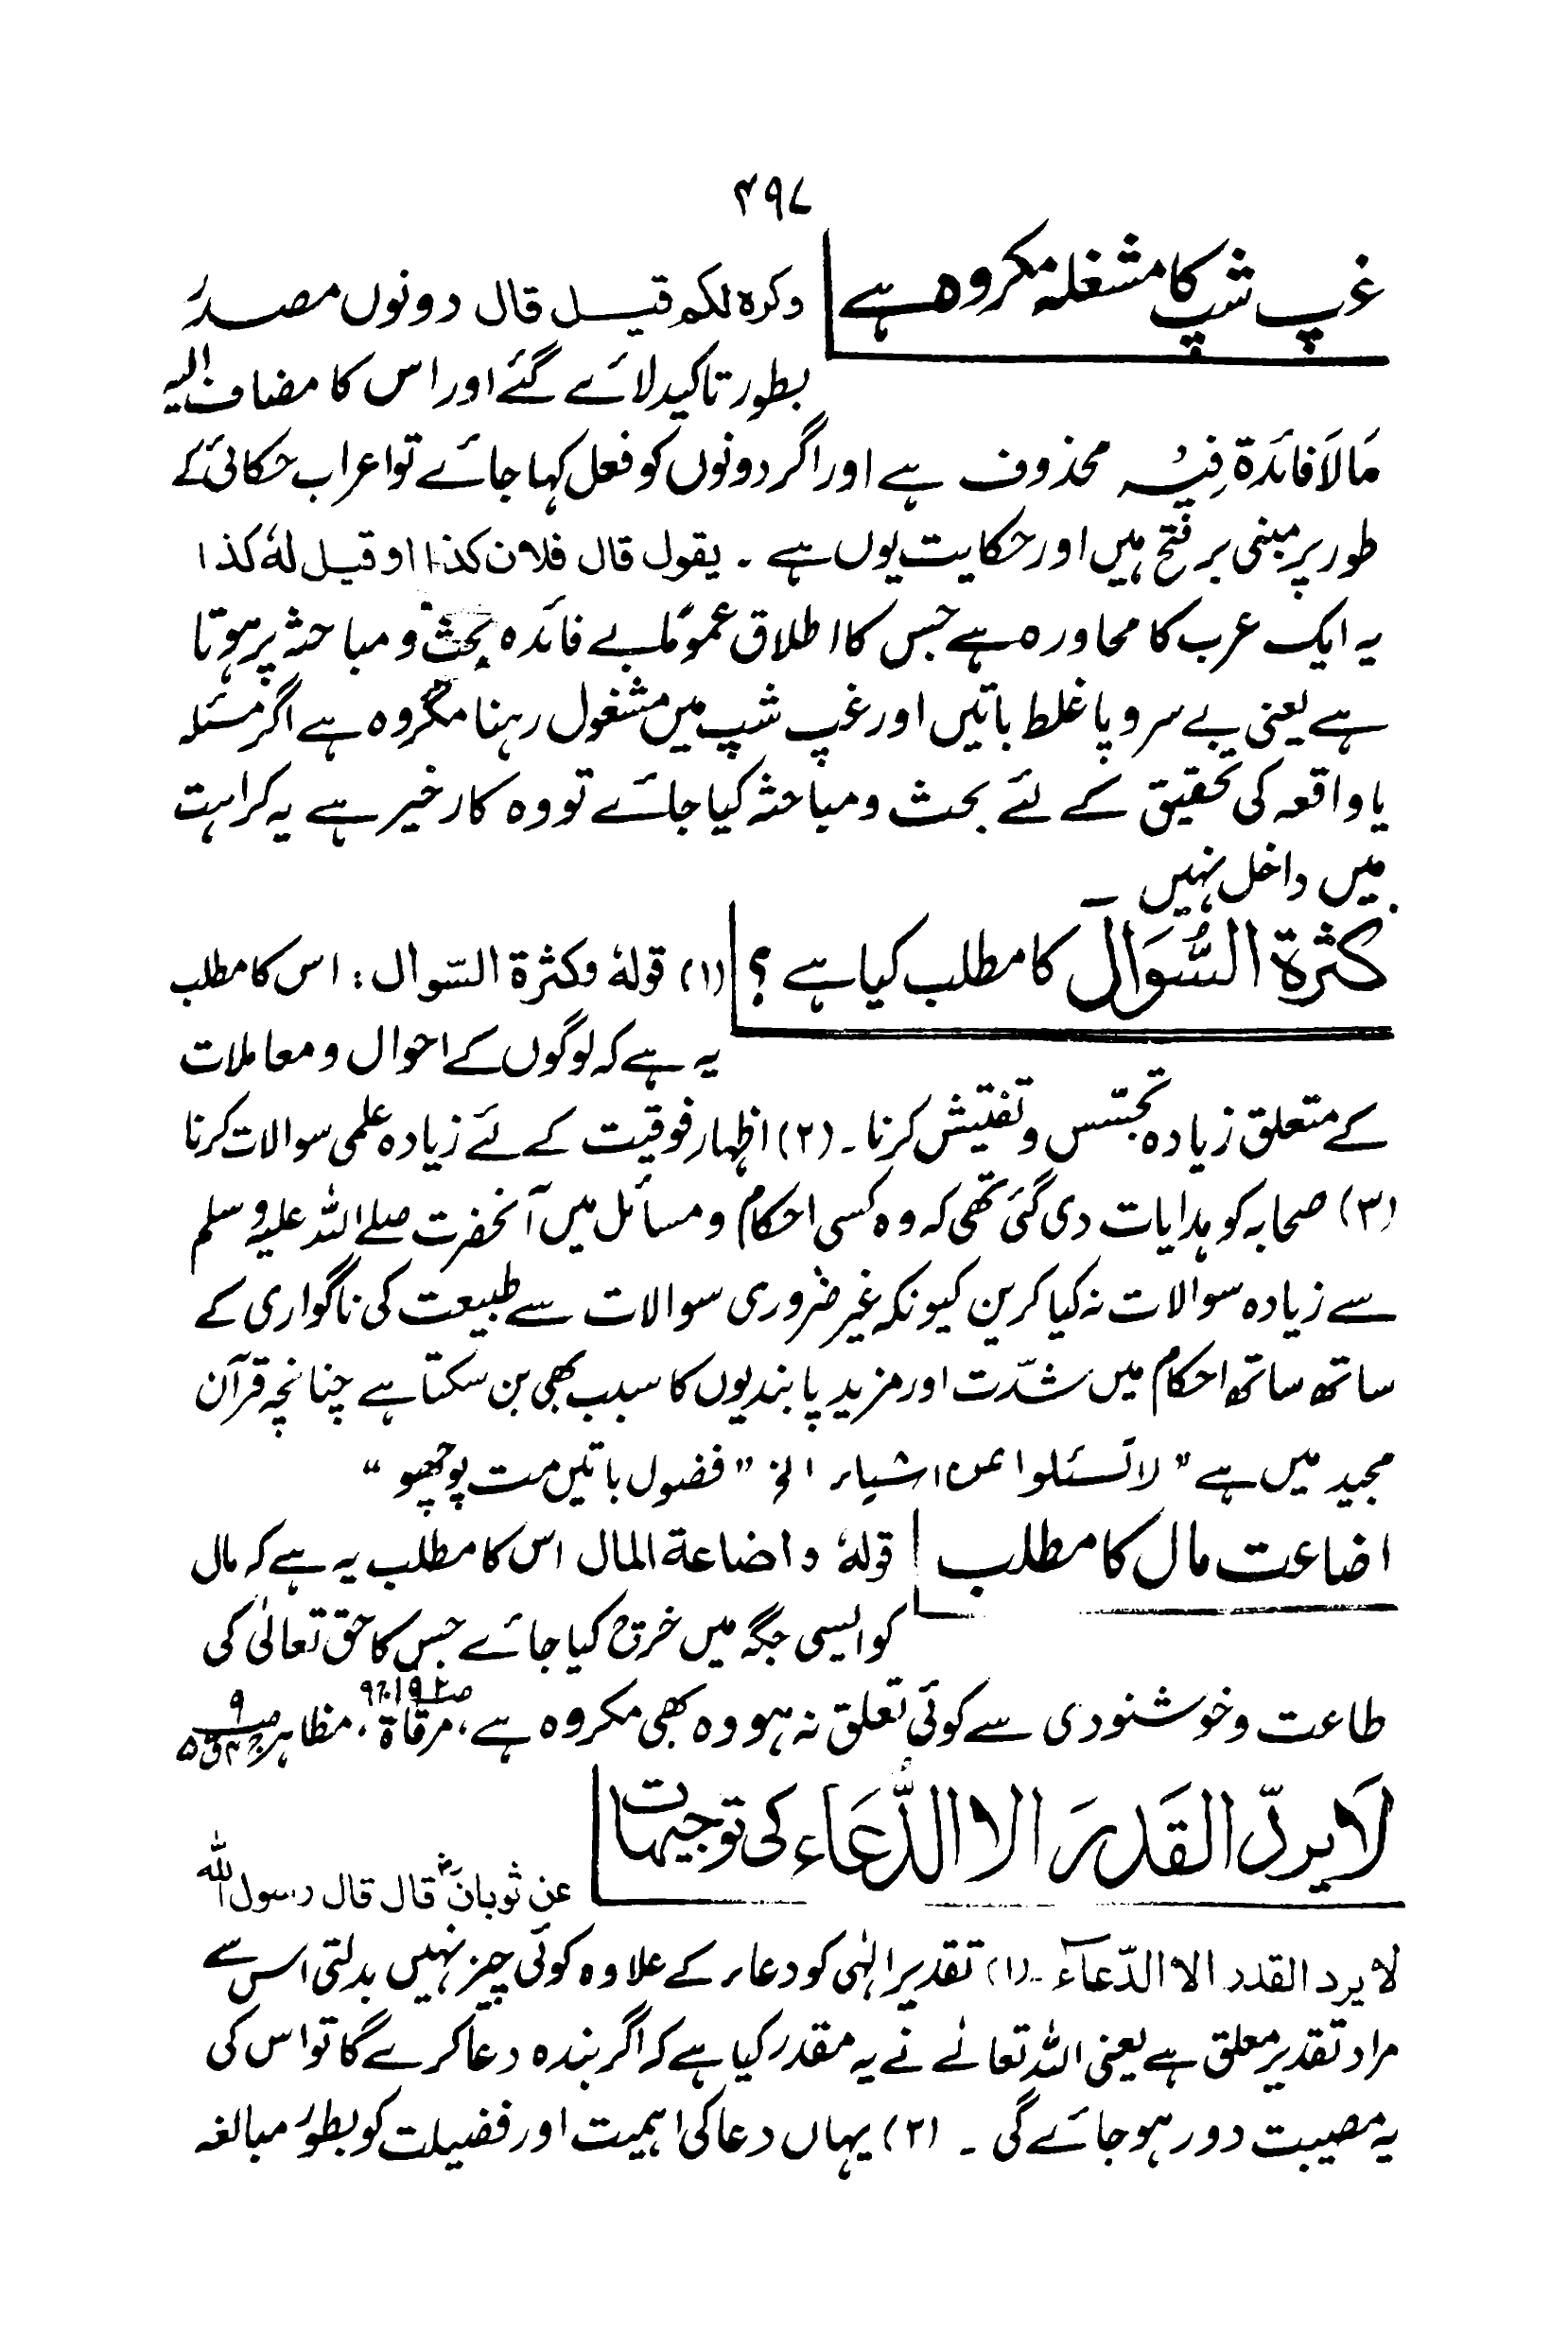 ۴۹۷
غپ شپ کا مشغلہ مکروہ ہے وکرہ لکم قیل قال دونوں مصدر
بطور تاکید لائے گئے اور اس کا مضاف الیہ
مَا لَا فائدة فِیْہ محذوف ہے اور اگر دونوں کو فعل کہا جائے تو اعراب حکائی کے
طور پر مبنی بر فتح ہیں اور حکایت یوں ہے ۔ یقول قال فلان کذا او قیل لہٗ کذا
یہ ایک عرب کا محاورہ ہے جس کا اطلاق عمومًا بے فائدہ بحث و مباحثہ پر ہوتا
ہے یعنی بے سر و پا غلط باتیں اور غپ شپ میں مشغول رہنا مکروہ ہے اگر مسئلہ
یا واقعہ کی تحقیق کے لئے بحث و مباحثہ کیا جائے تو وہ کار خیر ہے یہ کراہت
میں داخل نہیں ۔
کثرة السُّوَال کا مطلب کیا ہے ؟ (۱) قولہٗ وکثرة السّوال : اس کا مطلب
یہ ہے کہ لوگوں کے احوال و معاملات
کے متعلق زیادہ تجسّس و تفتیش کرنا ۔ (۲) اظہار فوقیت کے لئے زیادہ علمی سوالات کرنا
(۳) صحابہ کو ہدایات دی گئی تھی کہ وہ کسی احکام و مسائل میں آنحضرت صلے اللہ علیہ و سلم
سے زیادہ سوالات نہ کیا کریں کیونکہ غیر ضروری سوالات سے طبیعت کی ناگواری کے
ساتھ ساتھ احکام میں شدّت اور مزید پابندیوں کا سبب بھی بن سکتا ہے چنانچہ قرآن
مجید میں ہے " لا تسئلوا عن اشیاء الخ " فضول باتیں مت پوچھو "
اضاعت مال کا مطلب قولہٗ و اضاعة المال اس کا مطلب یہ ہے کہ مال
کو ایسی جگہ میں خرچ کیا جائے جس کا حق تعالیٰ کی
طاعت و خوشنودی سے کوئی تعلق نہ ہو وہ بھی مکروہ ہے ، مرقاة ، مظاہر
لَا یردّ القَدَرَ الا الدُّعَاء کی توجیہات عن ثوبانؓ قال قال رسول اللہ
لا یرد القدر الا الدّعآء ۔ (۱) تقدیر الٰہی کو دعاء کے علاوہ کوئی چیز نہیں بدلتی اس سے
مراد تقدیر معلق ہے یعنی اللہ تعالے نے یہ مقدر کیا ہے کہ اگر بندہ دعا کرے گا تو اس کی
یہ مصیبت دور ہو جائے گی ۔ (۲) یہاں دعا کی اہمیت اور فضیلت کو بطور مبالغہ